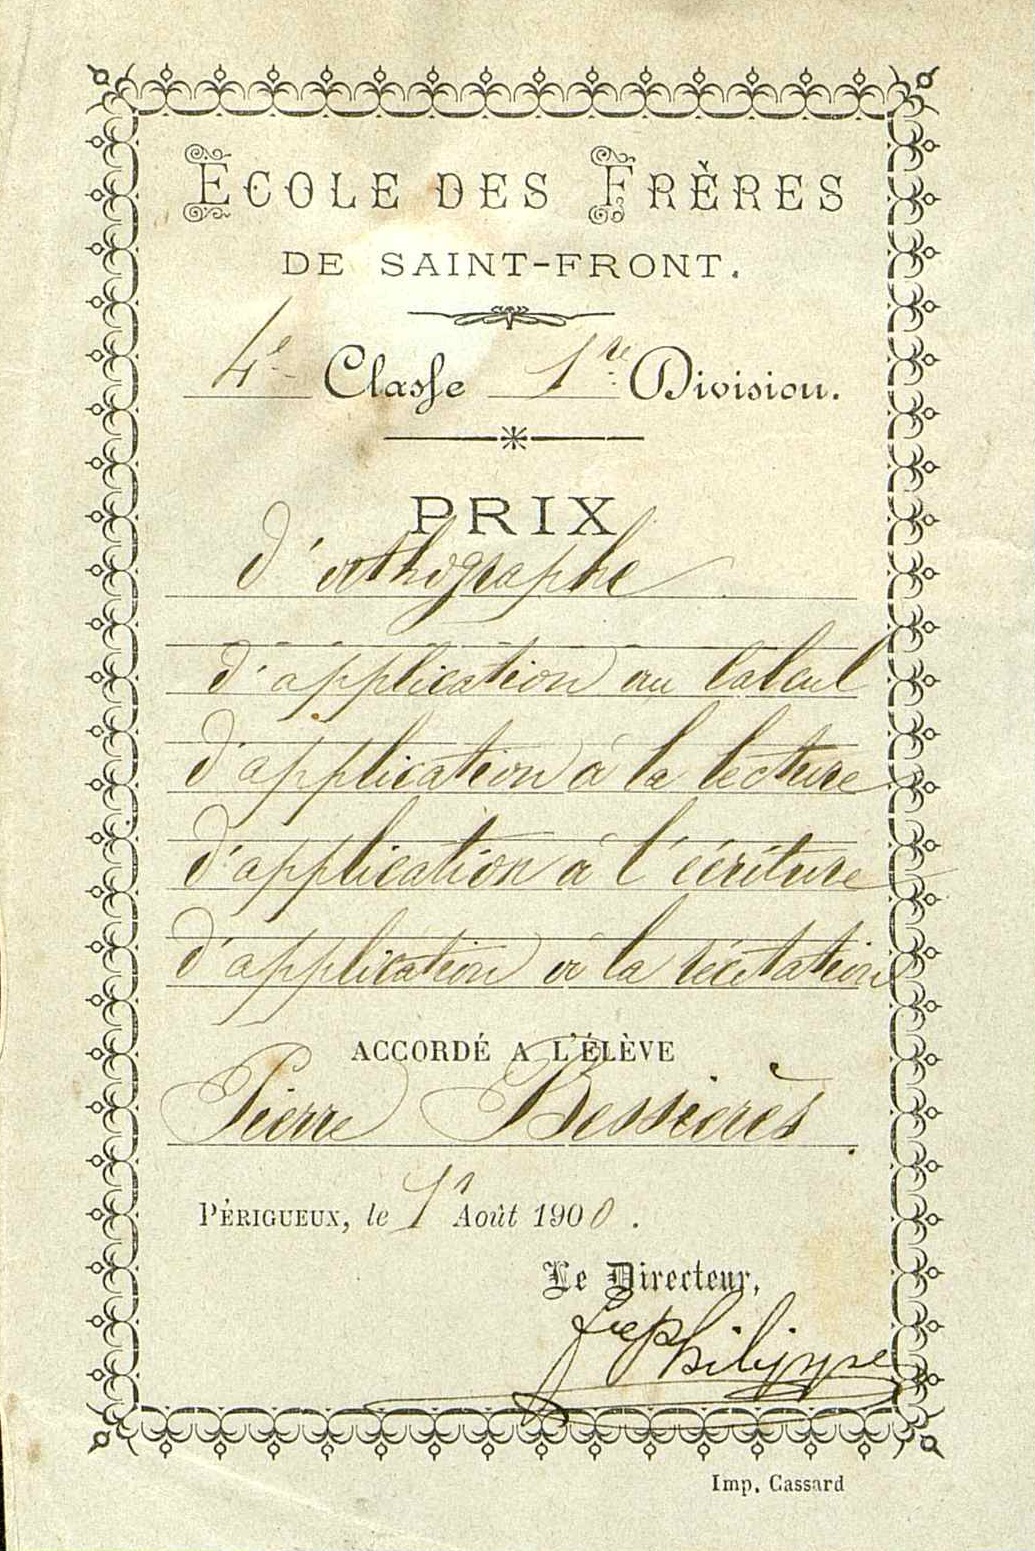 ECOLE DES FRÈRES
DE SAINT-FRONT.
4e Classe 1re Division.
PRIX
d'orthographe
d'application au calcul
d'application à la lecture
d'application à l'écriture
d'application à la récitation
ACCORDÉ A L'ÉLÈVE
Pierre Bessières
PÉRIGUEUX, le 1r Août 1900.
Le Directeur,
fre Philippe
Imp. Cassard